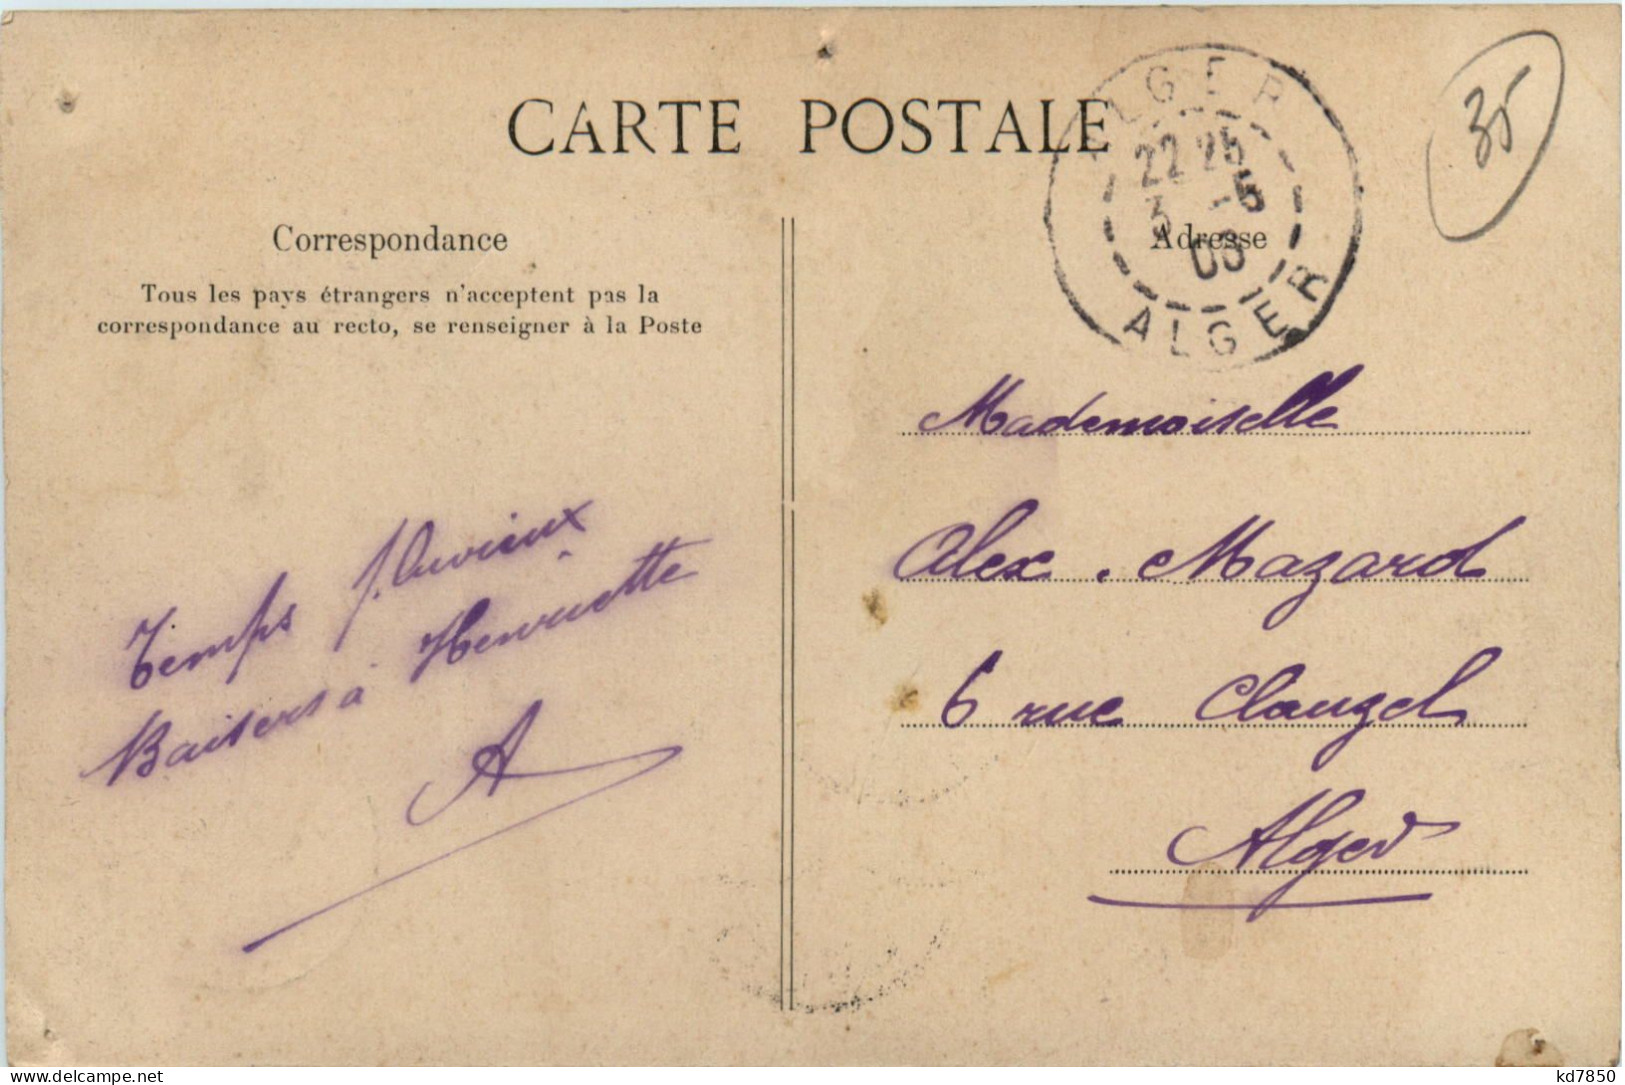 CARTE POSTALE
ALGER
22 25
3 -5
03
ALGER
35
Correspondance
Adresse
Tous les pays étrangers n'acceptent pas la
correspondance au recto, se renseigner à la Poste
Temps pluvieux
Baisers à Henriette
A
Mademoiselle
Alex. Mazard
6 rue Clauzel
Alger
delcampe.net
kd7850